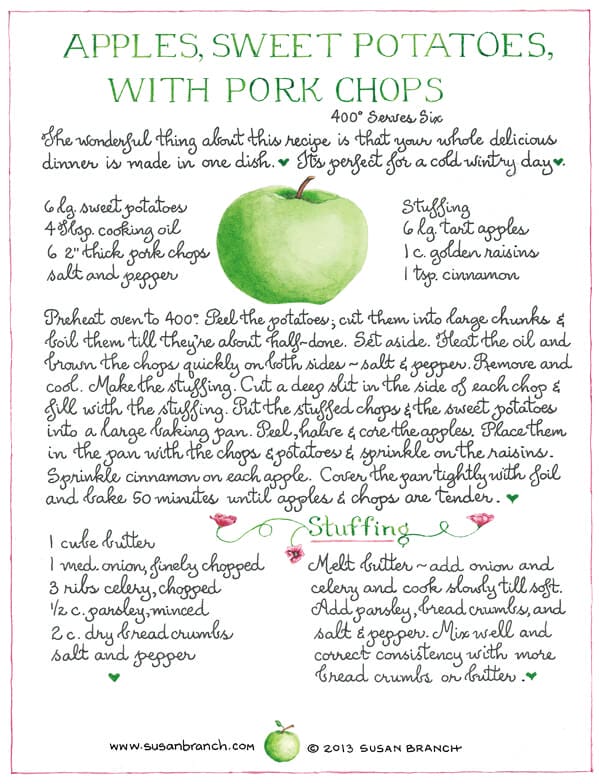 APPLES, SWEET POTATOES,
WITH PORK CHOPS
400° Serves Six
The wonderful thing about this recipe is that your whole delicious
dinner is made in one dish. It's perfect for a cold wintry day.
6 lg. sweet potatoes
4 Tbsp. cooking oil
6 2" thick pork chops
salt and pepper
Stuffing
6 lg. tart apples
1 c. golden raisins
1 tsp. cinnamon
Preheat oven to 400°. Peel the potatoes; cut them into large chunks &
boil them till they're about half-done. Set aside. Heat the oil and
brown the chops quickly on both sides ~ salt & pepper. Remove and
cool. Make the stuffing. Cut a deep slit in the side of each chop &
fill with the stuffing. Put the stuffed chops & the sweet potatoes
into a large baking pan. Peel, halve & core the apples. Place them
in the pan with the chops & potatoes & sprinkle on the raisins.
Sprinkle cinnamon on each apple. Cover the pan tightly with foil
and bake 50 minutes until apples & chops are tender.
Stuffing
1 cube butter
1 med. onion, finely chopped
3 ribs celery, chopped
1/2 c. parsley, minced
2 c. dry bread crumbs
salt and pepper
Melt butter ~ add onion and
celery and cook slowly till soft.
Add parsley, bread crumbs, and
salt & pepper. Mix well and
correct consistency with more
bread crumbs or butter.
www.susanbranch.com © 2013 SUSAN BRANCH